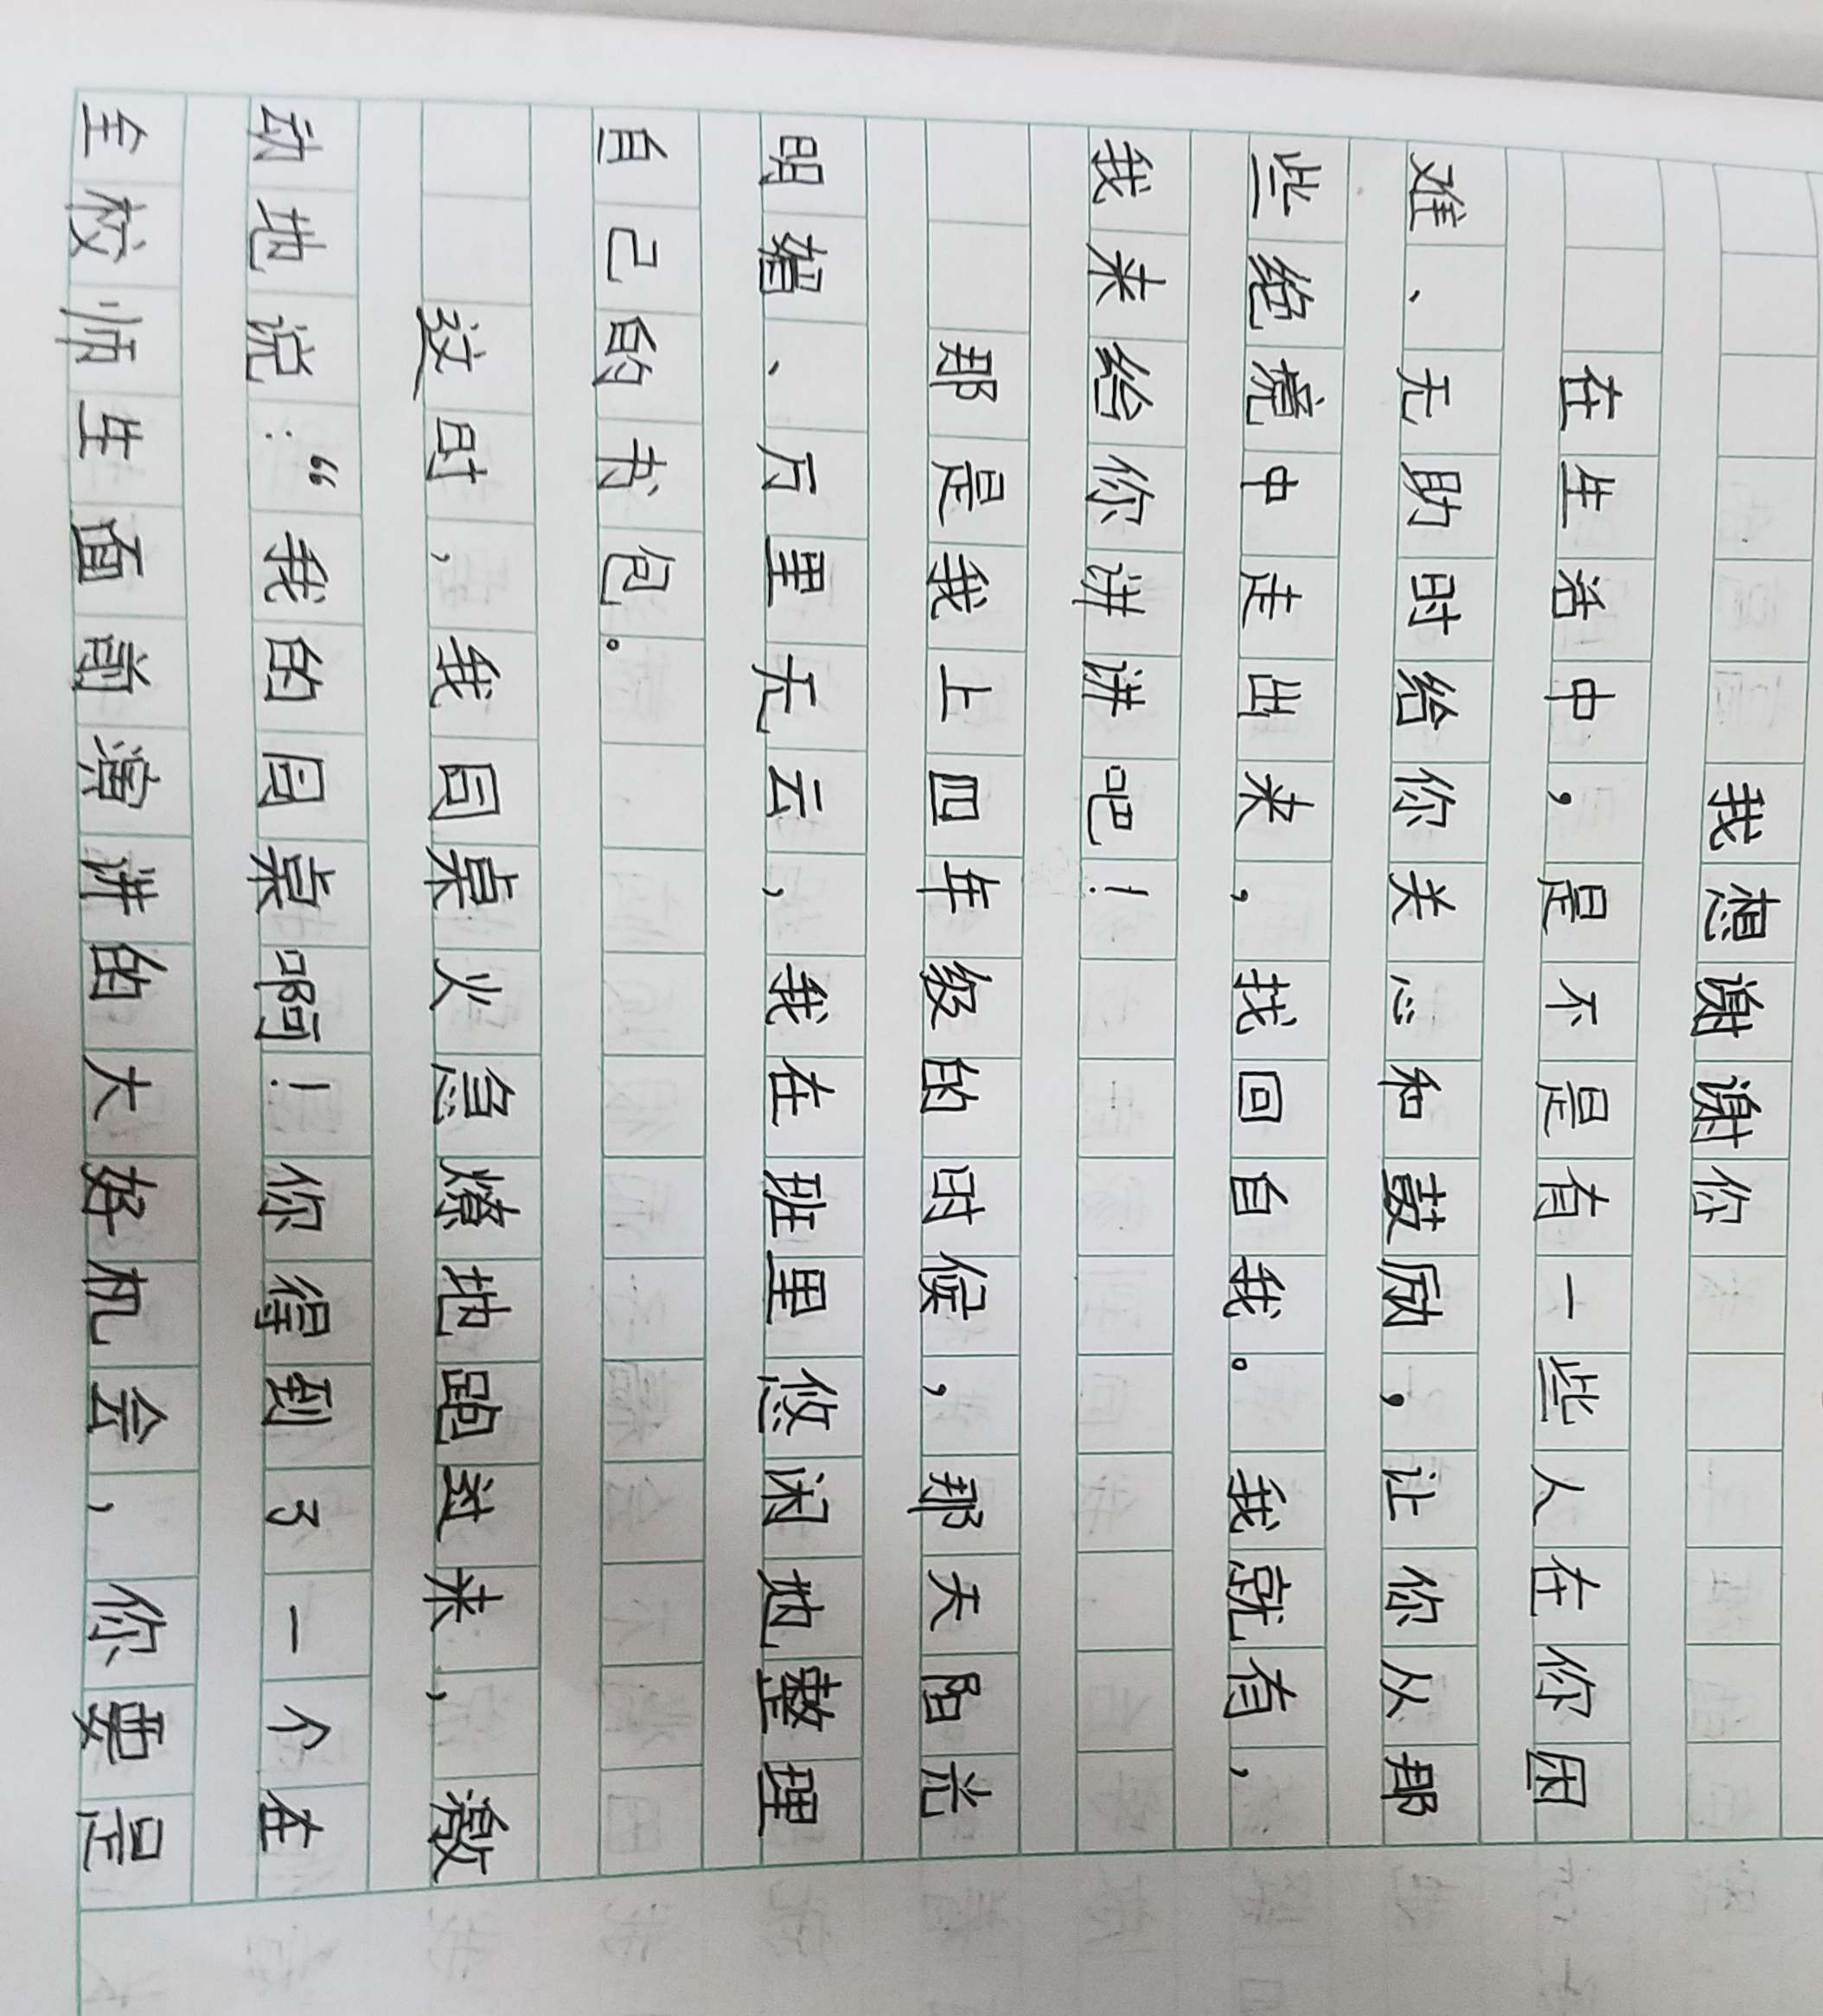 我想谢谢你
在生活中，是不是有一些人在你困
难、无助时给你关心和鼓励，让你从那
些绝境中走出来，找回自我。我就有，
我来给你讲讲吧！
那是我上四年级的时候，那天阳光
明媚、万里无云，我在班里悠闲地整理
自己的书包。
这时，我同桌火急燎地跑过来，激
动地说：“我的同桌啊！你得到了一个在
全校师生面前演讲的大好机会，你要是